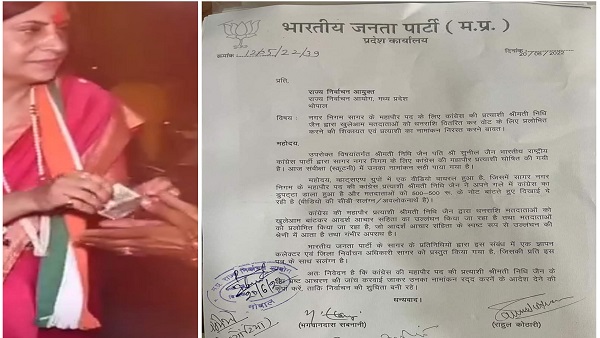 भारतीय जनता पार्टी ( म.प्र. )
प्रदेश कार्यालय
क्रमांक 1275/22/39
दिनांक 20/06/2022
प्रति,
राज्य निर्वाचन आयुक्त
राज्य निर्वाचन आयोग, मध्य प्रदेश
भोपाल
विषय: नगर निगम सागर के महापौर पद के लिए कांग्रेस की प्रत्याशी श्रीमती निधि
जैन द्वारा खुलेआम मतदाताओं को धनराशि वितरित कर वोट के लिए प्रलोभित
करने की शिकायत एवं प्रत्याशी का नामांकन निरस्त करने बाबत।
महोदय,
उपरोक्त विषयांतर्गत श्रीमती निधि जैन पति श्री सुनील जैन भारतीय राष्ट्रीय
कांग्रेस पार्टी द्वारा सागर नगर निगम के लिए कांग्रेस की महापौर प्रत्याशी घोषित की गयी
है। आज संवीक्षा (स्क्रूटनी) में उनका नामांकन सही पाया गया है।
महोदय, व्हाट्सएप ग्रुपों में एक वीडियो वायरल हुआ है, जिसमें सागर नगर
निगम के महापौर पद की कांग्रेस प्रत्याशी श्रीमती निधि जैन ने अपने गले में कांग्रेस का
दुपट्टा डाला हुआ है और मतदाताओं को 500-500 रू. के नोट बांटते हुए दिखाई दे
रही है (वीडियो की सीडी संलग्न/अवलोकनार्थ है)।
कांग्रेस की महापौर प्रत्याशी श्रीमती निधि जैन द्वारा धनराशि मतदाताओं को
खुलेआम बांटकर आदर्श आचार संहिता का उल्लंघन किया जा रहा है तथा मतदाताओं
को प्रलोभित किया जा रहा है, जो आदर्श आचार संहिता के स्पष्ट रूप से उल्लंघन की
श्रेणी में आता है तथा गंभीर अपराध है।
भारतीय जनता पार्टी के सागर के प्रतिनिधियों द्वारा इस संबंध में एक ज्ञापन
कलेक्टर एवं जिला निर्वाचन अधिकारी सागर को प्रस्तुत किया गया है, जिसकी प्रति इस
पत्र के साथ संलग्न है।
अतः निवेदन है कि कांग्रेस की महापौर पद की प्रत्याशी श्रीमती निधि जैन के
भ्रष्ट आचरण की जांच करवाई जाकर उनका नामांकन रद्द करने के आदेश देने की
कृपा करें, ताकि निर्वाचन की शुचिता बनी रहे।
धन्यवाद।
(भगवानदास सबनानी)
(राहुल कोठारी)